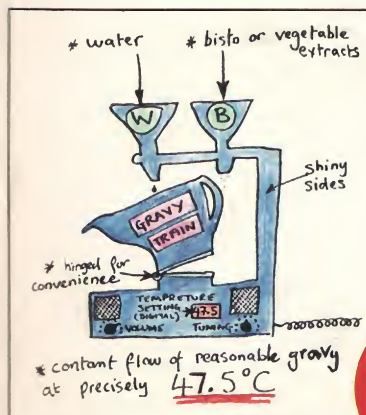 * water
* bisto or vegetable
extracts
W
B
shiny
sides
GRAVY
TRAIN
* hinged for
convenience
TEMPRETURE
SETTING
(DIGITAL)
47.5
VOLUME
TUNING
* contant flow of reasonable gravy
at precisely 47.5°C